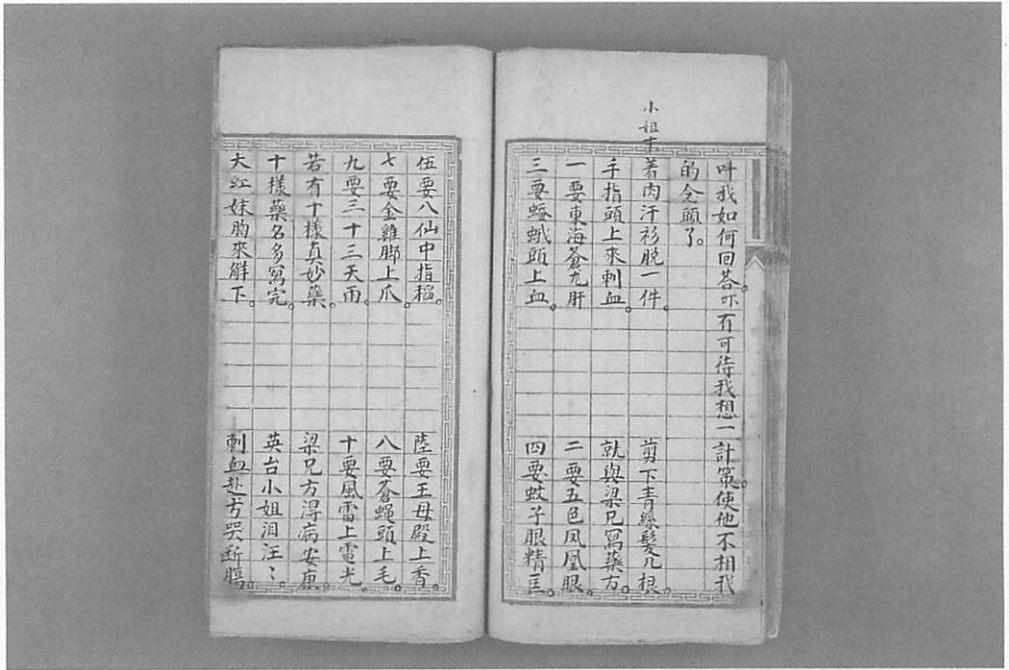 呌我如何回荅吓有可待我想一計策使他不相我
的念頭了。
小姐才
著肉汗衫脫一件。 剪下青絲髮几根。
手指頭上來刺血。 就與梁兄寫藥方。
一要東海蒼龙肝 二要五色凤凰眼。
三要蛟蛾頭上血。 四要蚊子眼精匡。
伍要八仙中指稲。 陸要王母殿上香。
七要金雞脚上爪。 八要蒼蝇頭上毛。
九要三十三天雨。 十要風雷上電光。
若有十樣真妙藥。 梁兄方淂病安康。
十樣藥名多寫完。 英台小姐泪汪〻。
大江妹胸來解下。 刺血赴方哭断腸。